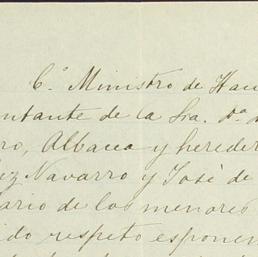 C.º Ministro de Hac
ntante de la Sra. Dª
ro, Albacea y hereder
ez Navarro y José de
ario de los menores
ido respeto esponen